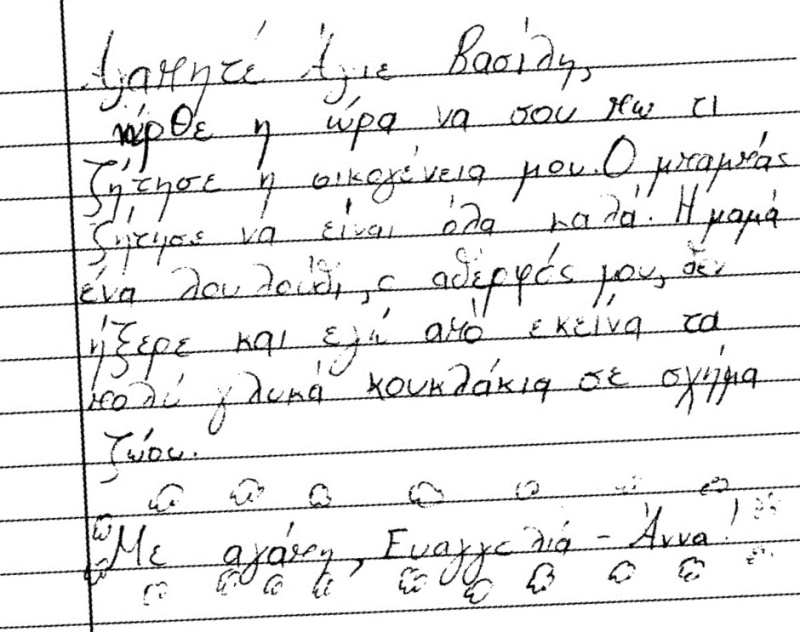 Αγαπητέ Άγιε Βασίλη,
ήρθε η ώρα να σου πω τι
ζήτησε η οικογένεια μου. Ο μπαμπάς
ζήτησε να είναι όλα καλά. Η μαμά
ένα λουλούθι, ο αθερφός μου, δεν
ήξερε και εγώ από εκείνα τα
πολύ γλυκά κουκλάκια σε σχήμα
ζώου.
Με αγάπη, Ευαγγελιά - Άννα!